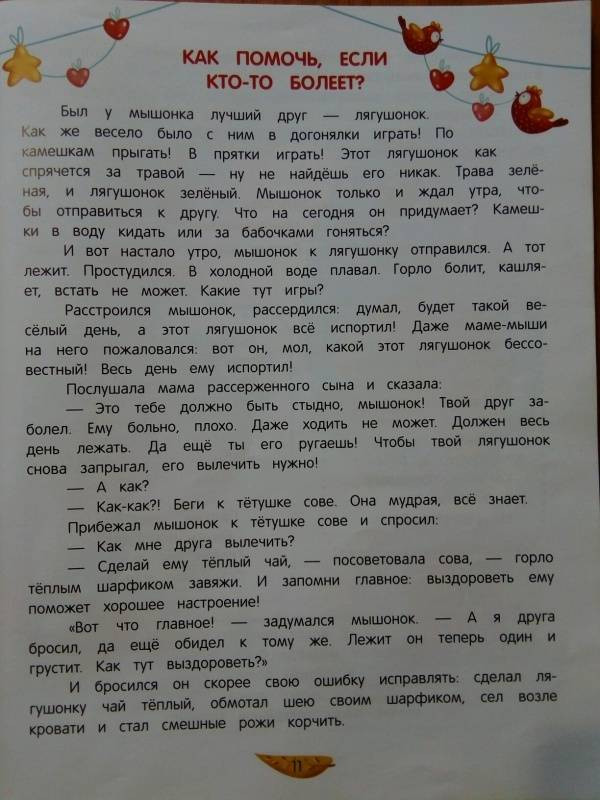 КАК ПОМОЧЬ, ЕСЛИ
КТО-ТО БОЛЕЕТ?
Был у мышонка лучший друг — лягушонок.
Как же весело было с ним в догонялки играть! По
камешкам прыгать! В прятки играть! Этот лягушонок как
спрячется за травой — ну не найдёшь его никак. Трава зелё-
ная, и лягушонок зелёный. Мышонок только и ждал утра, что-
бы отправиться к другу. Что на сегодня он придумает? Камеш-
ки в воду кидать или за бабочками гоняться?
И вот настало утро, мышонок к лягушонку отправился. А тот
лежит. Простудился. В холодной воде плавал. Горло болит, кашля-
ет, встать не может. Какие тут игры?
Расстроился мышонок, рассердился: думал, будет такой ве-
сёлый день, а этот лягушонок всё испортил! Даже маме-мыши
на него пожаловался: вот он, мол, какой этот лягушонок бессо-
вестный! Весь день ему испортил!
Послушала мама рассерженного сына и сказала:
— Это тебе должно быть стыдно, мышонок! Твой друг за-
болел. Ему больно, плохо. Даже ходить не может. Должен весь
день лежать. Да ещё ты его ругаешь! Чтобы твой лягушонок
снова запрыгал, его вылечить нужно!
— А как?
— Как-как?! Беги к тётушке сове. Она мудрая, всё знает.
Прибежал мышонок к тётушке сове и спросил:
— Как мне друга вылечить?
— Сделай ему тёплый чай, — посоветовала сова, — горло
тёплым шарфиком завяжи. И запомни главное: выздороветь ему
поможет хорошее настроение!
«Вот что главное! — задумался мышонок. — А я друга
бросил, да ещё обидел к тому же. Лежит он теперь один и
грустит. Как тут выздороветь?»
И бросился он скорее свою ошибку исправлять: сделал ля-
гушонку чай тёплый, обмотал шею своим шарфиком, сел возле
кровати и стал смешные рожи корчить.
11